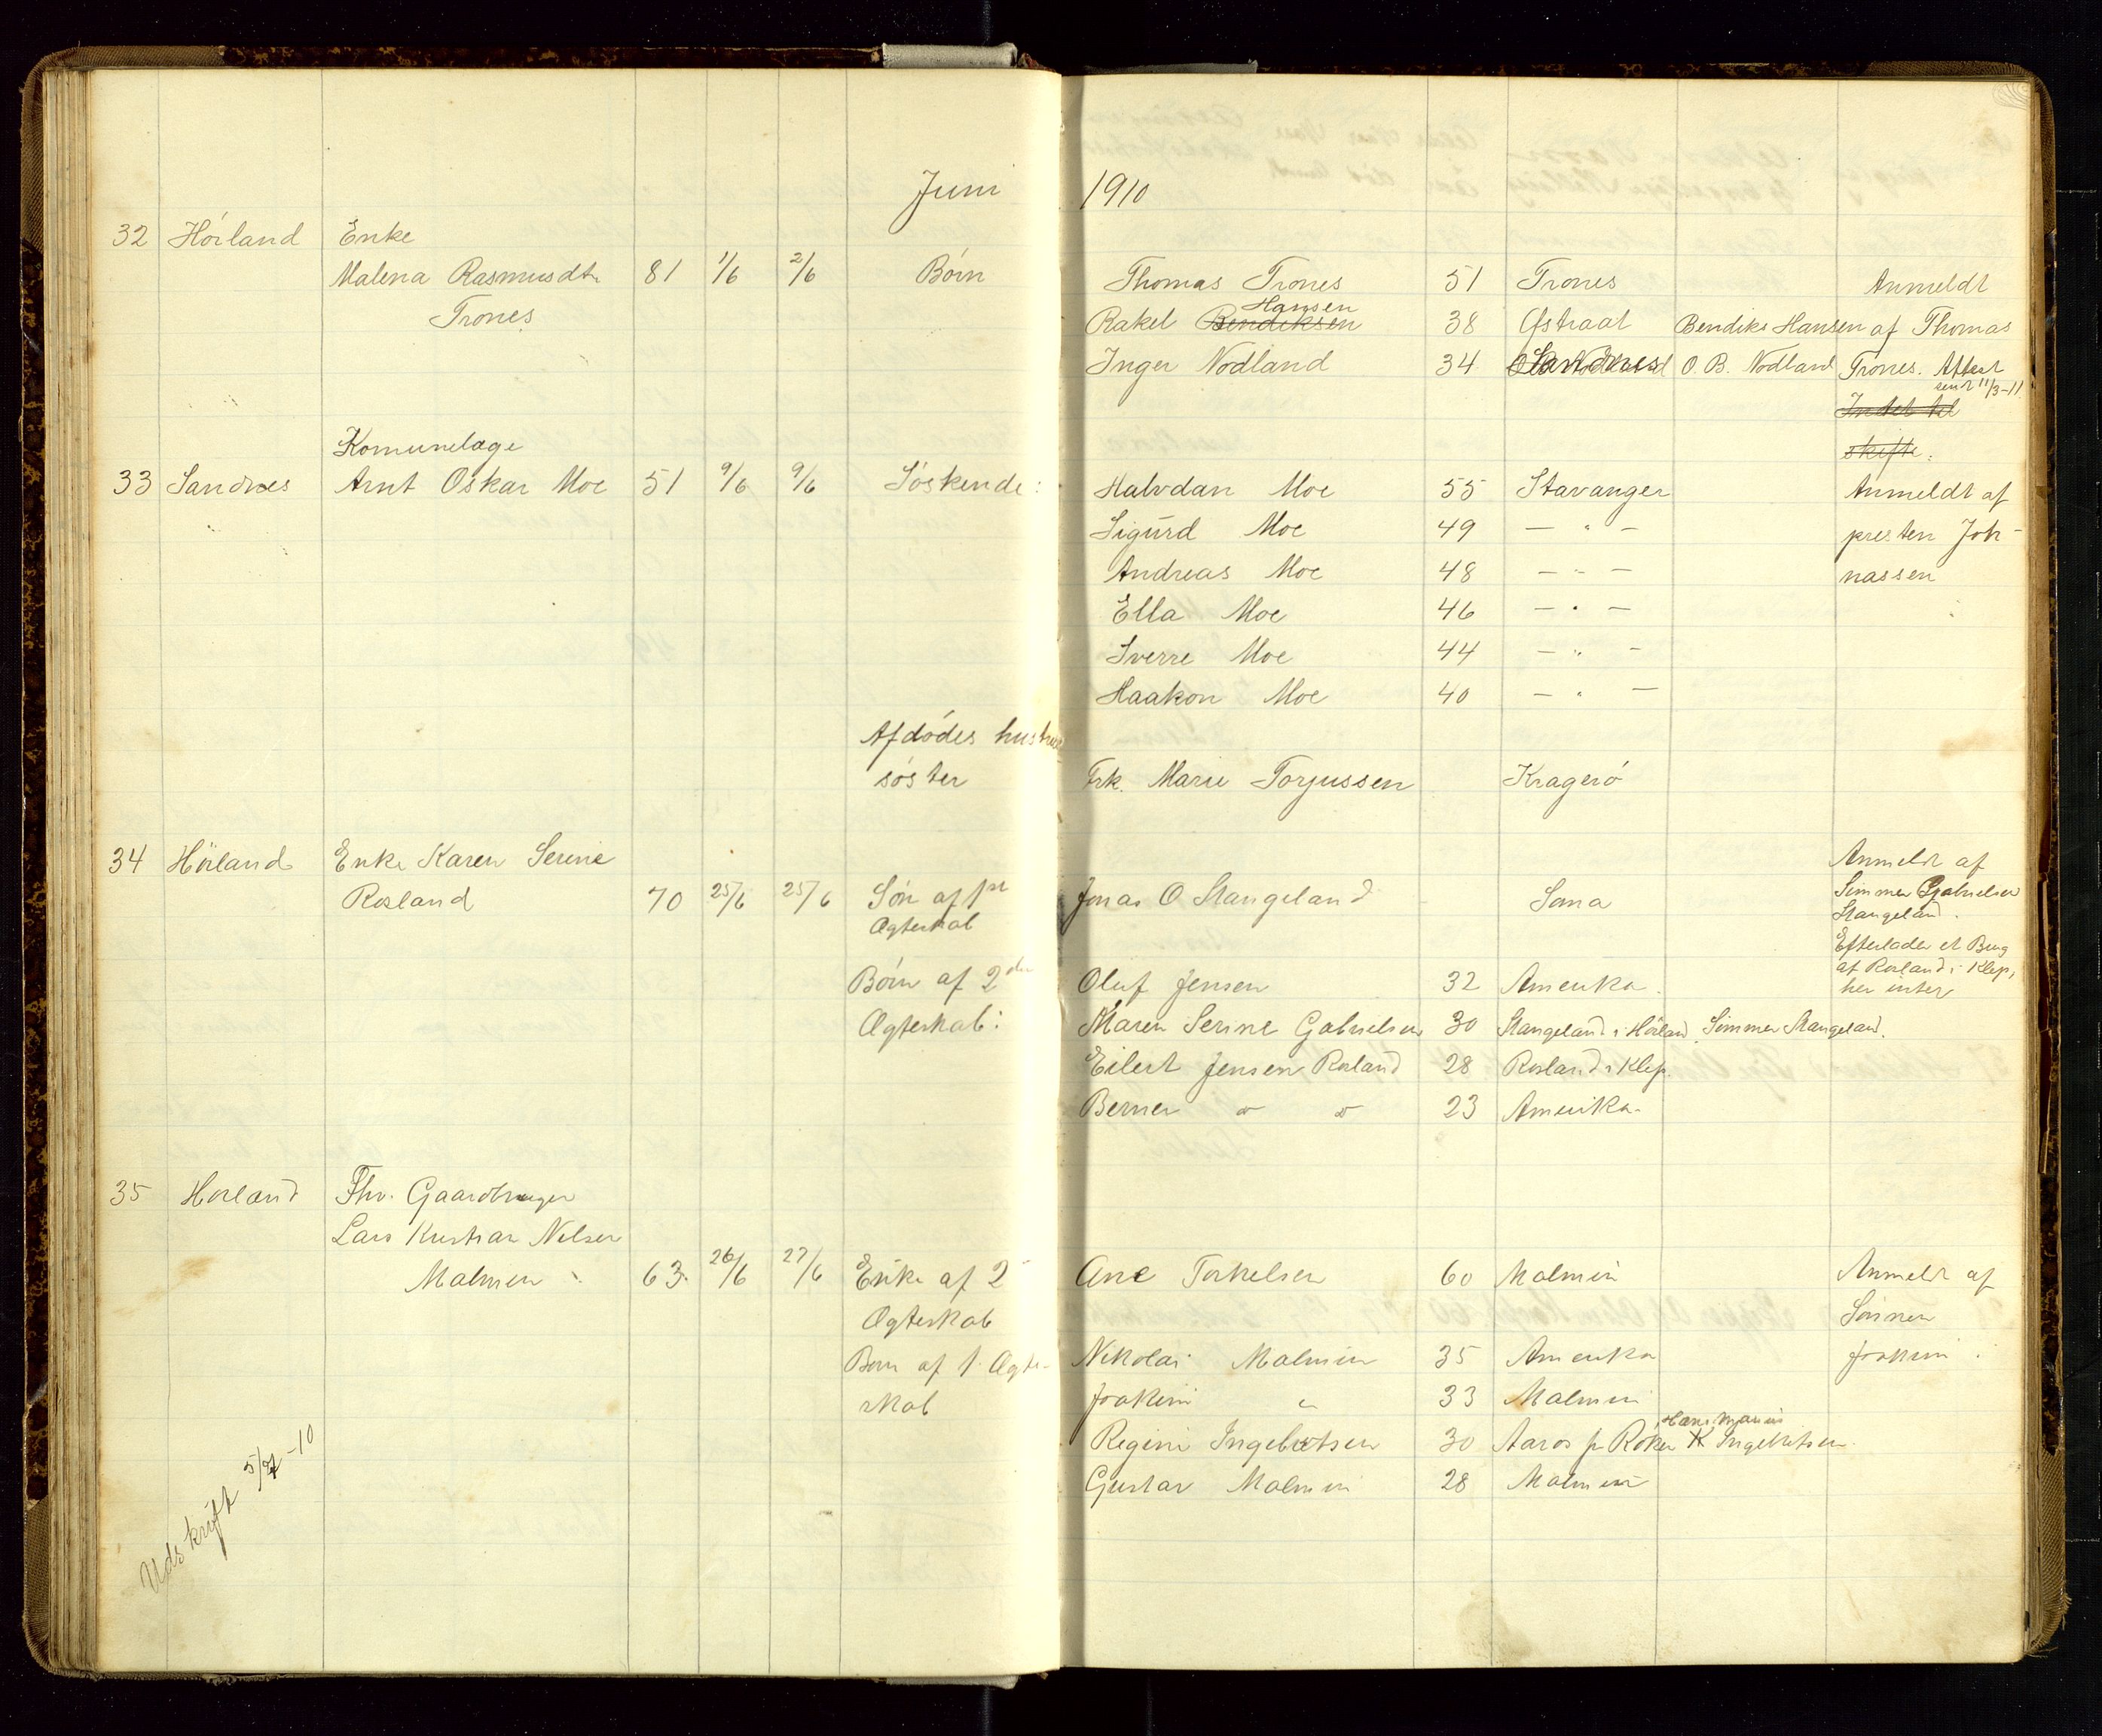 Juni 1910
32 Hóiland Enke
Malena Rasmusdt. 81 1/6 2/6 Börn Thomas Trones 51 Trones Anmeldt
Trones Rakel Bendiksen Hansen 38 Ofstraat Bendiks Hansen af Thomas
Inger Nodland 34 Sandnes O. B. Nodland Trones. Attest
send 11/3-11
Indet til
Komunelæge skifte.
33 Sandnes Arnt Oskar Moe 51 9/6 9/6 Söskende: Halvdan Moe 55 Stavanger Anmeldt af
Sigurd Moe 49 — " — presten Joh-
Andreas Moe 48 — " — nassen
Ella Moe 46 — " —
Sverre Moe 44 — " —
Haakon Moe 40 — " —
Afdödes hustrus
söster Frk. Marie Torjussen Kragerö
34 Höiland Enke Karen Serine Anmeldt af
Rosland 70 25/6 25/6 Sön af 1ste Jonas O Stangeland Soma Simmen Gabrielsen
Ægteskab Stangeland.
Efterlader et Brug
Börn af 2det Oluf Jensen 32 Amerika. at Rosland i Klep,
her intet
Ægteskab: Maren Serine Gabrielsen 30 Stangeland i Höiland Simmen Stangeland.
Eilert Jensen Rosland 28 Rosland i Klep.
Berner " " 23 Amerika.
35 Höiland Fhv. Gaardbruger
Lars Kristian Nilsen
Malmin 63. 26/6 27/6 Enke af 2 Ane Torkelsen 60 Malmin Anmeldt af
Ægteskab Sönnen
Born af 1. Ægte- Nikolai Malmin 35 Amerika Joakim.
skab Joakim " 33 Malmin
Hans Marius
Regine Ingebretsen 30 Aaros p Röken Ingebretsen.
Gustav Malmin 28 Malmin
Udskrift 5/7-10